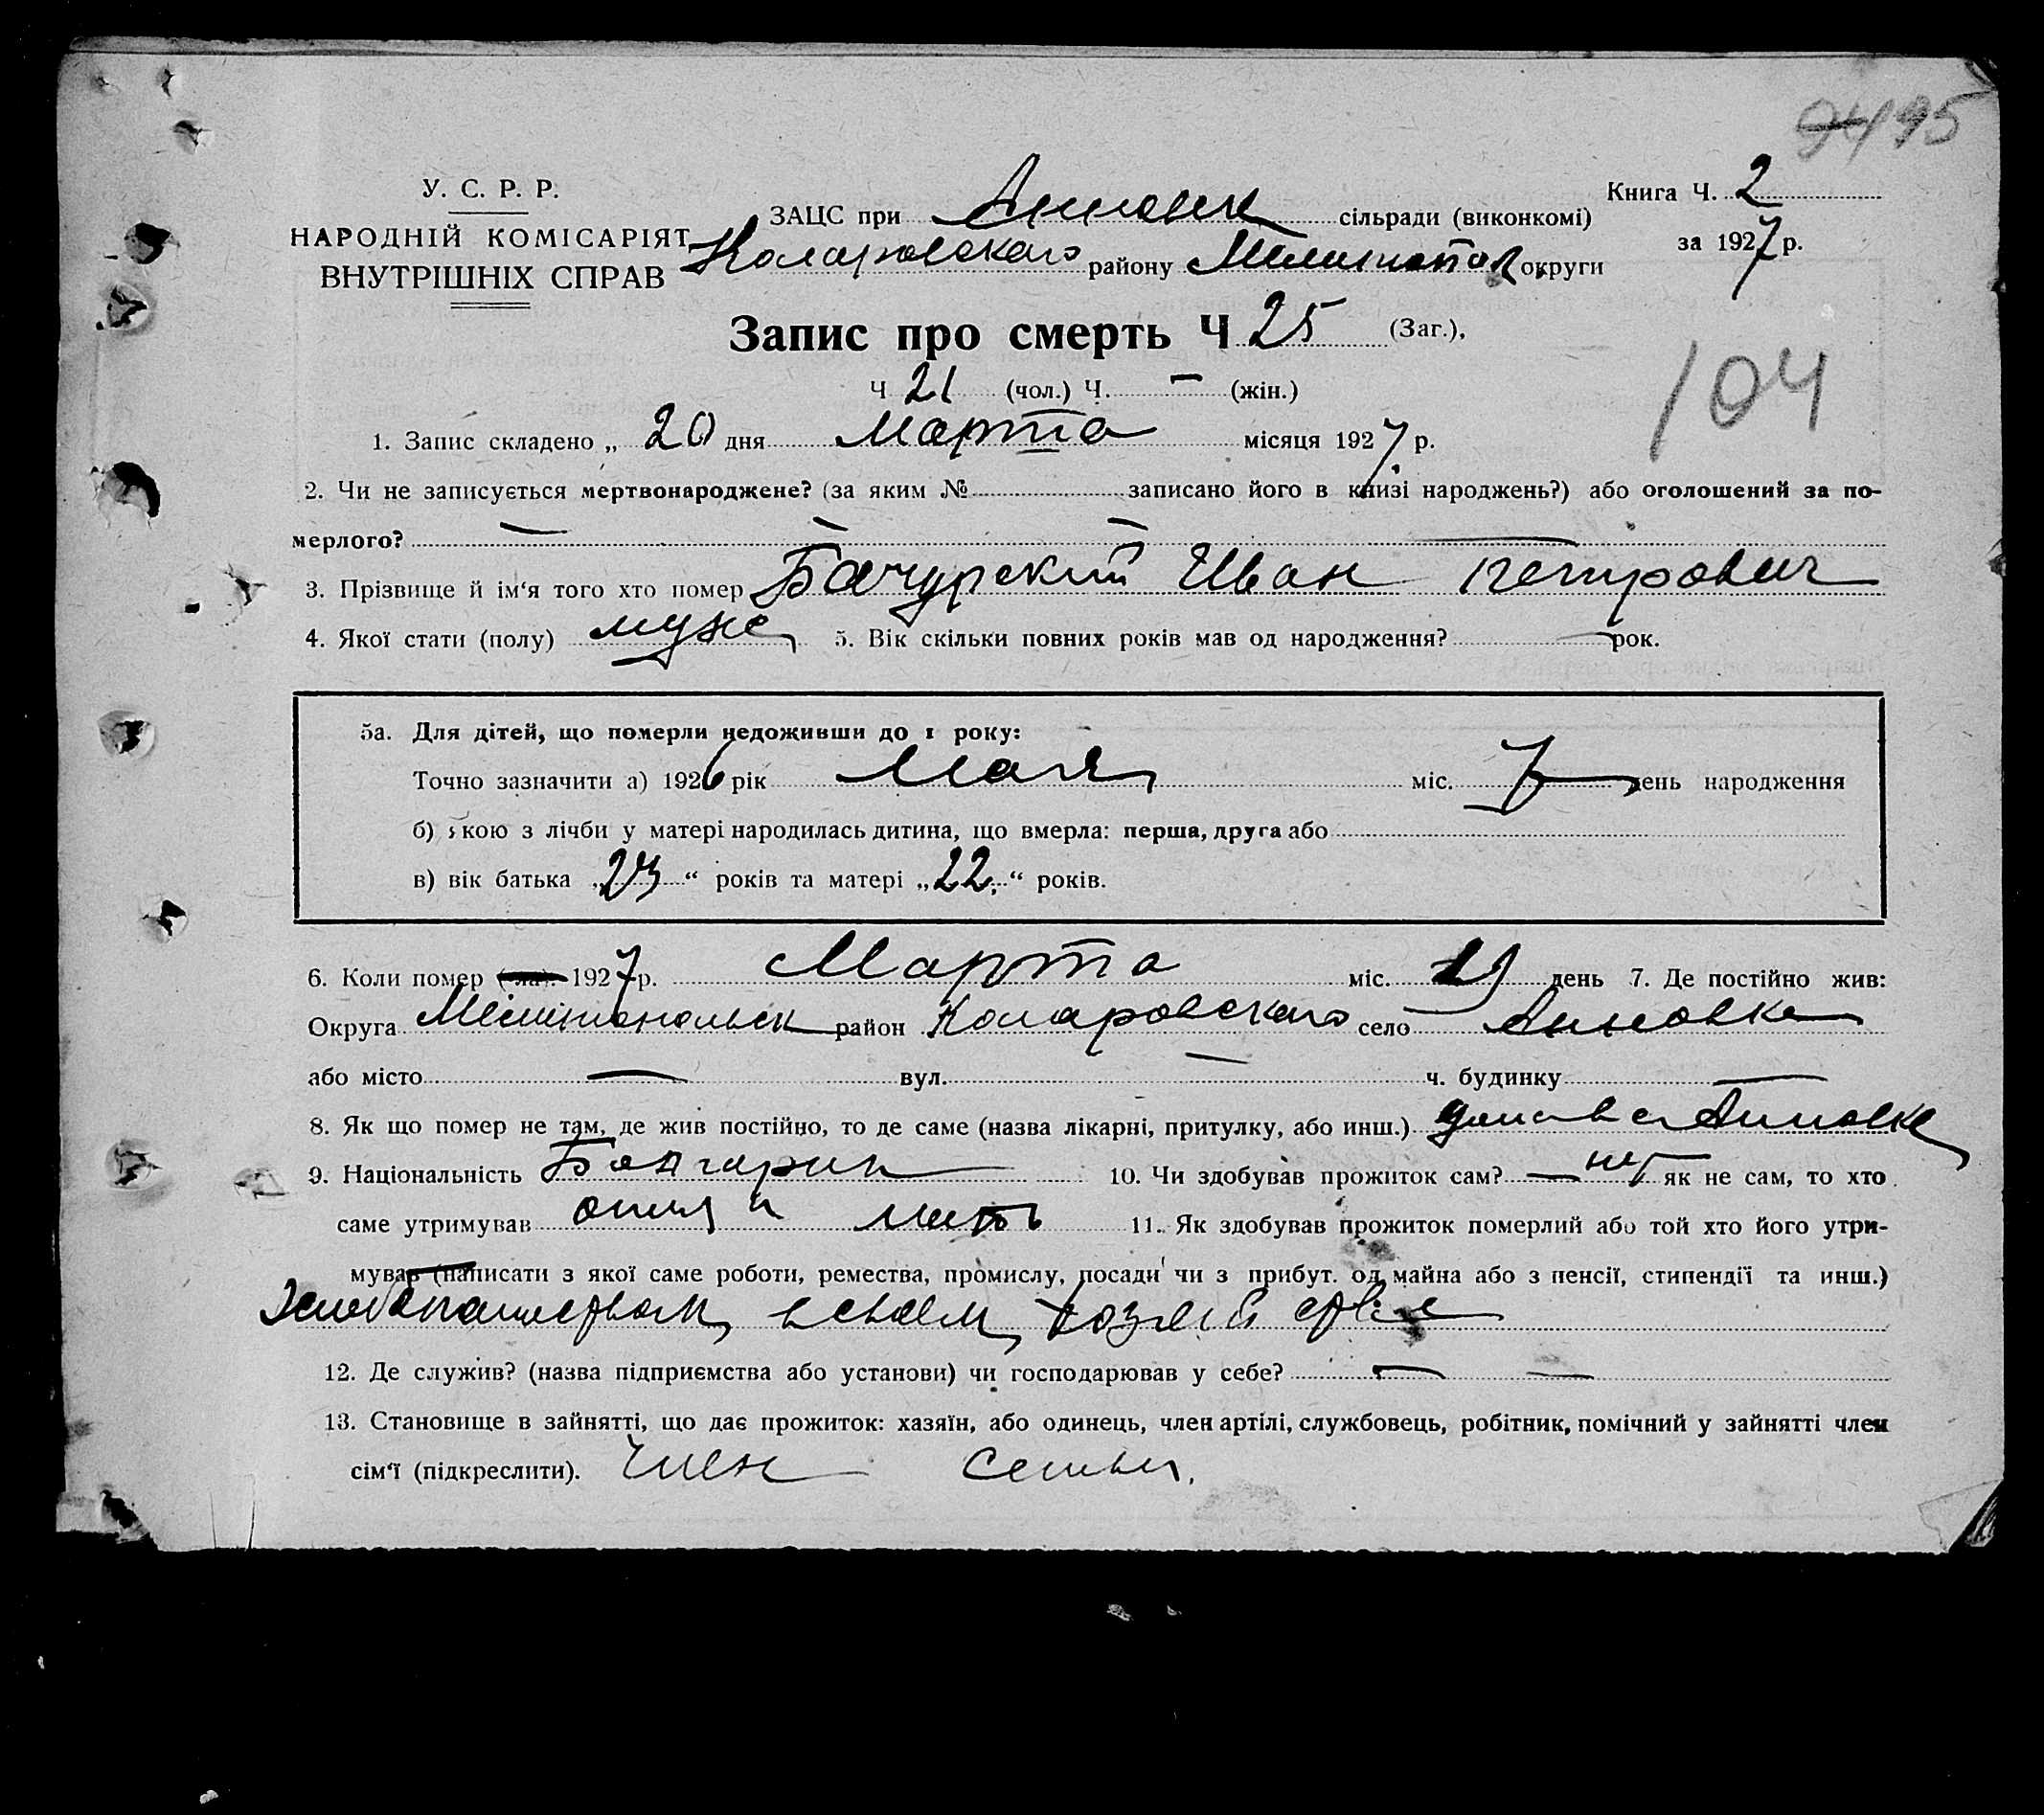 95
У. С. Р. Р.
НАРОДНІЙ КОМІСАРІЯТ
ВНУТРІШНІХ СПРАВ
ЗАЦС при Анновск сільради (виконкомі)
Коларовского району Мелитопол округи
Книга Ч. 2
за 1927 р.
Запис про смерть Ч 25 (Заг.),
Ч 21 (чол.) Ч. — (жін.)
104
1. Запис складено „ 20 дня Марта місяця 1927 р.
2. Чи не записується мертвонароджене? (за яким № записано його в книзі народжень?) або оголошений за по-
мерлого? —
3. Прізвище й ім‘я того хто помер Бачурский Иван Петрович
4. Якої стати (полу) муже 5. Вік скільки повних років мав од народження? — рок.
5а. Для дітей, що померли недоживши до 1 року:
Точно зазначити а) 1926 рік Мая міс. 7 день народження
б) якою з лічби у матері народилась дитина, що вмерла: перша, друга або
в) вік батька „23“ років та матері „22“ років.
6. Коли помер (-ла). 1927 р. Марта міс. 19 день 7. Де постійно жив:
Округа Мелитопольск район Коларовского село Анновка
або місто — вул. — ч. будинку —
8. Як що помер не там, де жив постійно, то де саме (назва лікарні, притулку, або инш.) дома в с Анновке
9. Національність Болгарин 10. Чи здобував прожиток сам? — нет як не сам, то хто
саме утримував отец и мать 11. Як здобував прожиток померлий або той хто його утри-
мував (написати з якої саме роботи, ремества, промислу, посади чи з прибут. од майна або з пенсії, стипендії та инш.)
Хлебопашеством в своем хозяйстве
12. Де служив? (назва підприємства або установи) чи господарював у себе? — —
13. Становище в зайнятті, що дає прожиток: хазяїн, або одинець, член артілі, службовець, робітник, помічний у зайнятті член
сім‘ї (підкреслити). Член семьи.